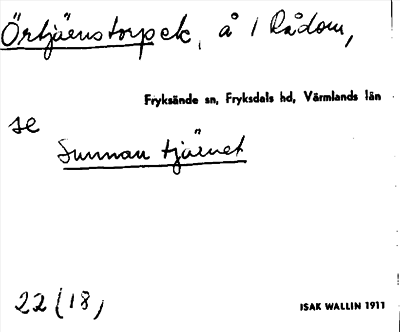 Örtjäenstorpek, å i Rådom,
Fryksände sn, Fryksdals hd, Värmlands län
se
Sunnan tjäenet
22 (18)
ISAK WALLIN 1911